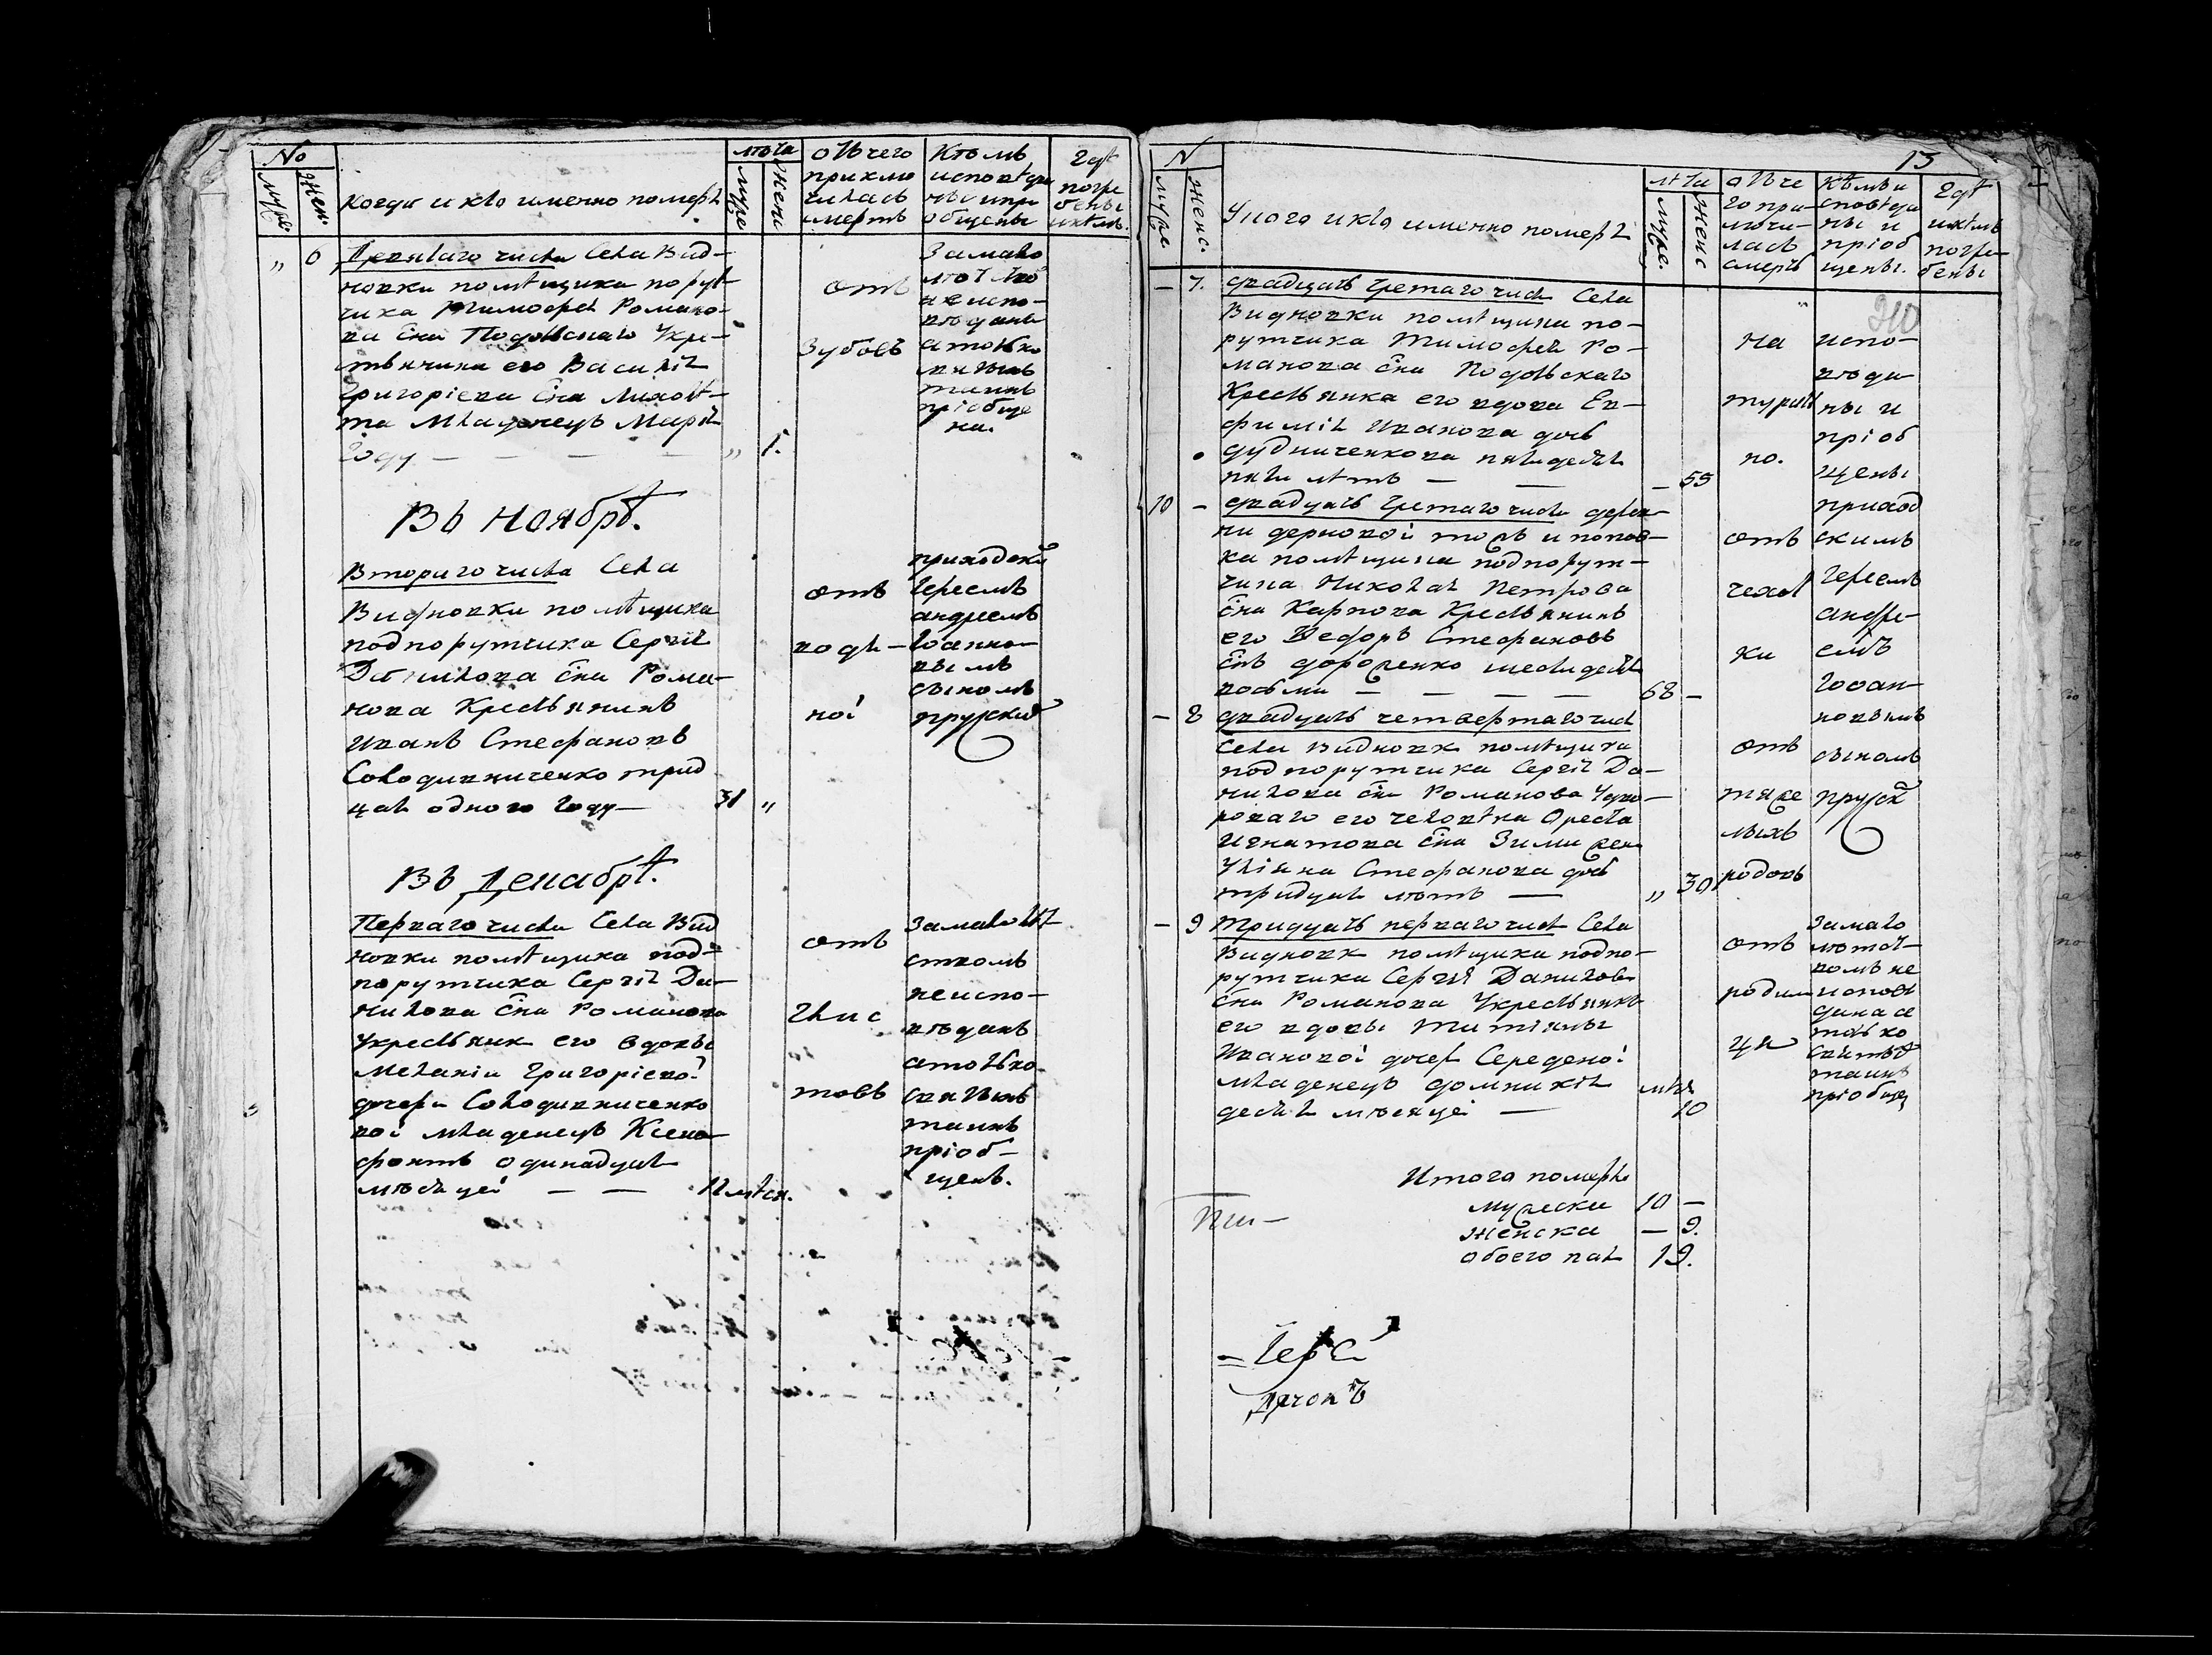 No
Муже
Жен:
Когда и кто именно померъ
лѣта
Муже
Женс
отчего приключилась смерть
Кѣмъ исповѣданы и пріобщены
гдѣ погребены и кѣмъ.
„ 6 Девятаго числа Села Вид-
новки помѣщика порут-
чика Тимофея Романо-
ва сна Подольскаго Укре-
стьянина его Василія
Григоріева сна
та младенецъ Марія
Году — — — — „ 1.
отъ
Зубовъ
За мало
лѣтство
не испо-
вѣдана
а только
святыхъ
таинъ
пріобще
на.
Въ Ноябрѣ.
Втораго числа Села
Видновки помѣщика
подпорутчика Сергія
Данилова сна Рома-
нова Крестьянинъ
Иванъ Стефановъ
Солодивниченко трид
цать одного году — 31 „
отъ
водя-
ной
приходский
Іереемъ
андреемъ
Іоанно-
вымъ
сыномъ
Въ Декабрѣ.
Перваго числа Села Вид
новки помѣщика под-
порутчика Сергія Да-
нилова сна Романова
Укрестьянк его вдовы
Меланіи Григоріевой
дочери Солодивниченко
вой младенецъ Ксено
фонтъ одинадцать
мѣсяцей — — 11 мѣся.
отъ
глис
товъ
За малолѣт
ствомъ
неиспо-
вѣданъ
атолько
святыхъ
таинъ
пріоб-
щенъ.
N
Муже
Женс.
15
Укого икто именно померъ
лѣта
Муже.
Женс
отче го приключи-лась смерть
Кѣмъ и сповѣданы и пріоб щены.
гдѣ икѣмъ погре-бены
— 7. Двадцать третаго числа Села
Видновки помѣщика по-
рутчика Тимофея Ро-
манова сна Подольскаго
Крестьянка его вдова Ев-
фимія Иванова дочь
дудниченкова пятьдесятъ
пяти лѣтъ — — — 55
на
но.
испо-
вѣда
ны и
пріоб
щены
10 — двадцать третаго числа дерев-
ни
ка помѣщика подпорут-
чика Николая Петрова
сна Карпова Крестьянинъ
его Федоръ Стефановъ
снъ дороженко шестьдесятъ
восьми — — — — 68 —
отъ
чехот
ки
приход
скимъ
Іереемъ
андре-
емъ
Іоан-
новымъ
сыномъ
— 8 двадцать четвертаго числ
Села Видновк помѣщика
подпорутчика Сергія Да-
нилова сна Романова Удво-
роваго его человѣка Ореста
Игнатова сна Зими жена
Уліяна Стефанова дочь
тридцать лѣтъ — „ 30
отъ
тяже
лыхъ
родовъ
— 9 Тридцать перваго числ Села
Видновк помѣщика подпо-
рутчика Сергія Данилова
сна Романова Укрестьянк
его вдовы Титіяны
Ивановой дочер Середеной
младенецъ Домникія мѣся
десять мѣсяцей — 10
отъ
родим
ця
За мало
лѣтст-
вомъ не
исповѣ
дана а
только
святыхъ
таинъ
пріобщен
Итого померло
мужеска 10 —
женска — 9.
обоего пола 19.
дячокъ